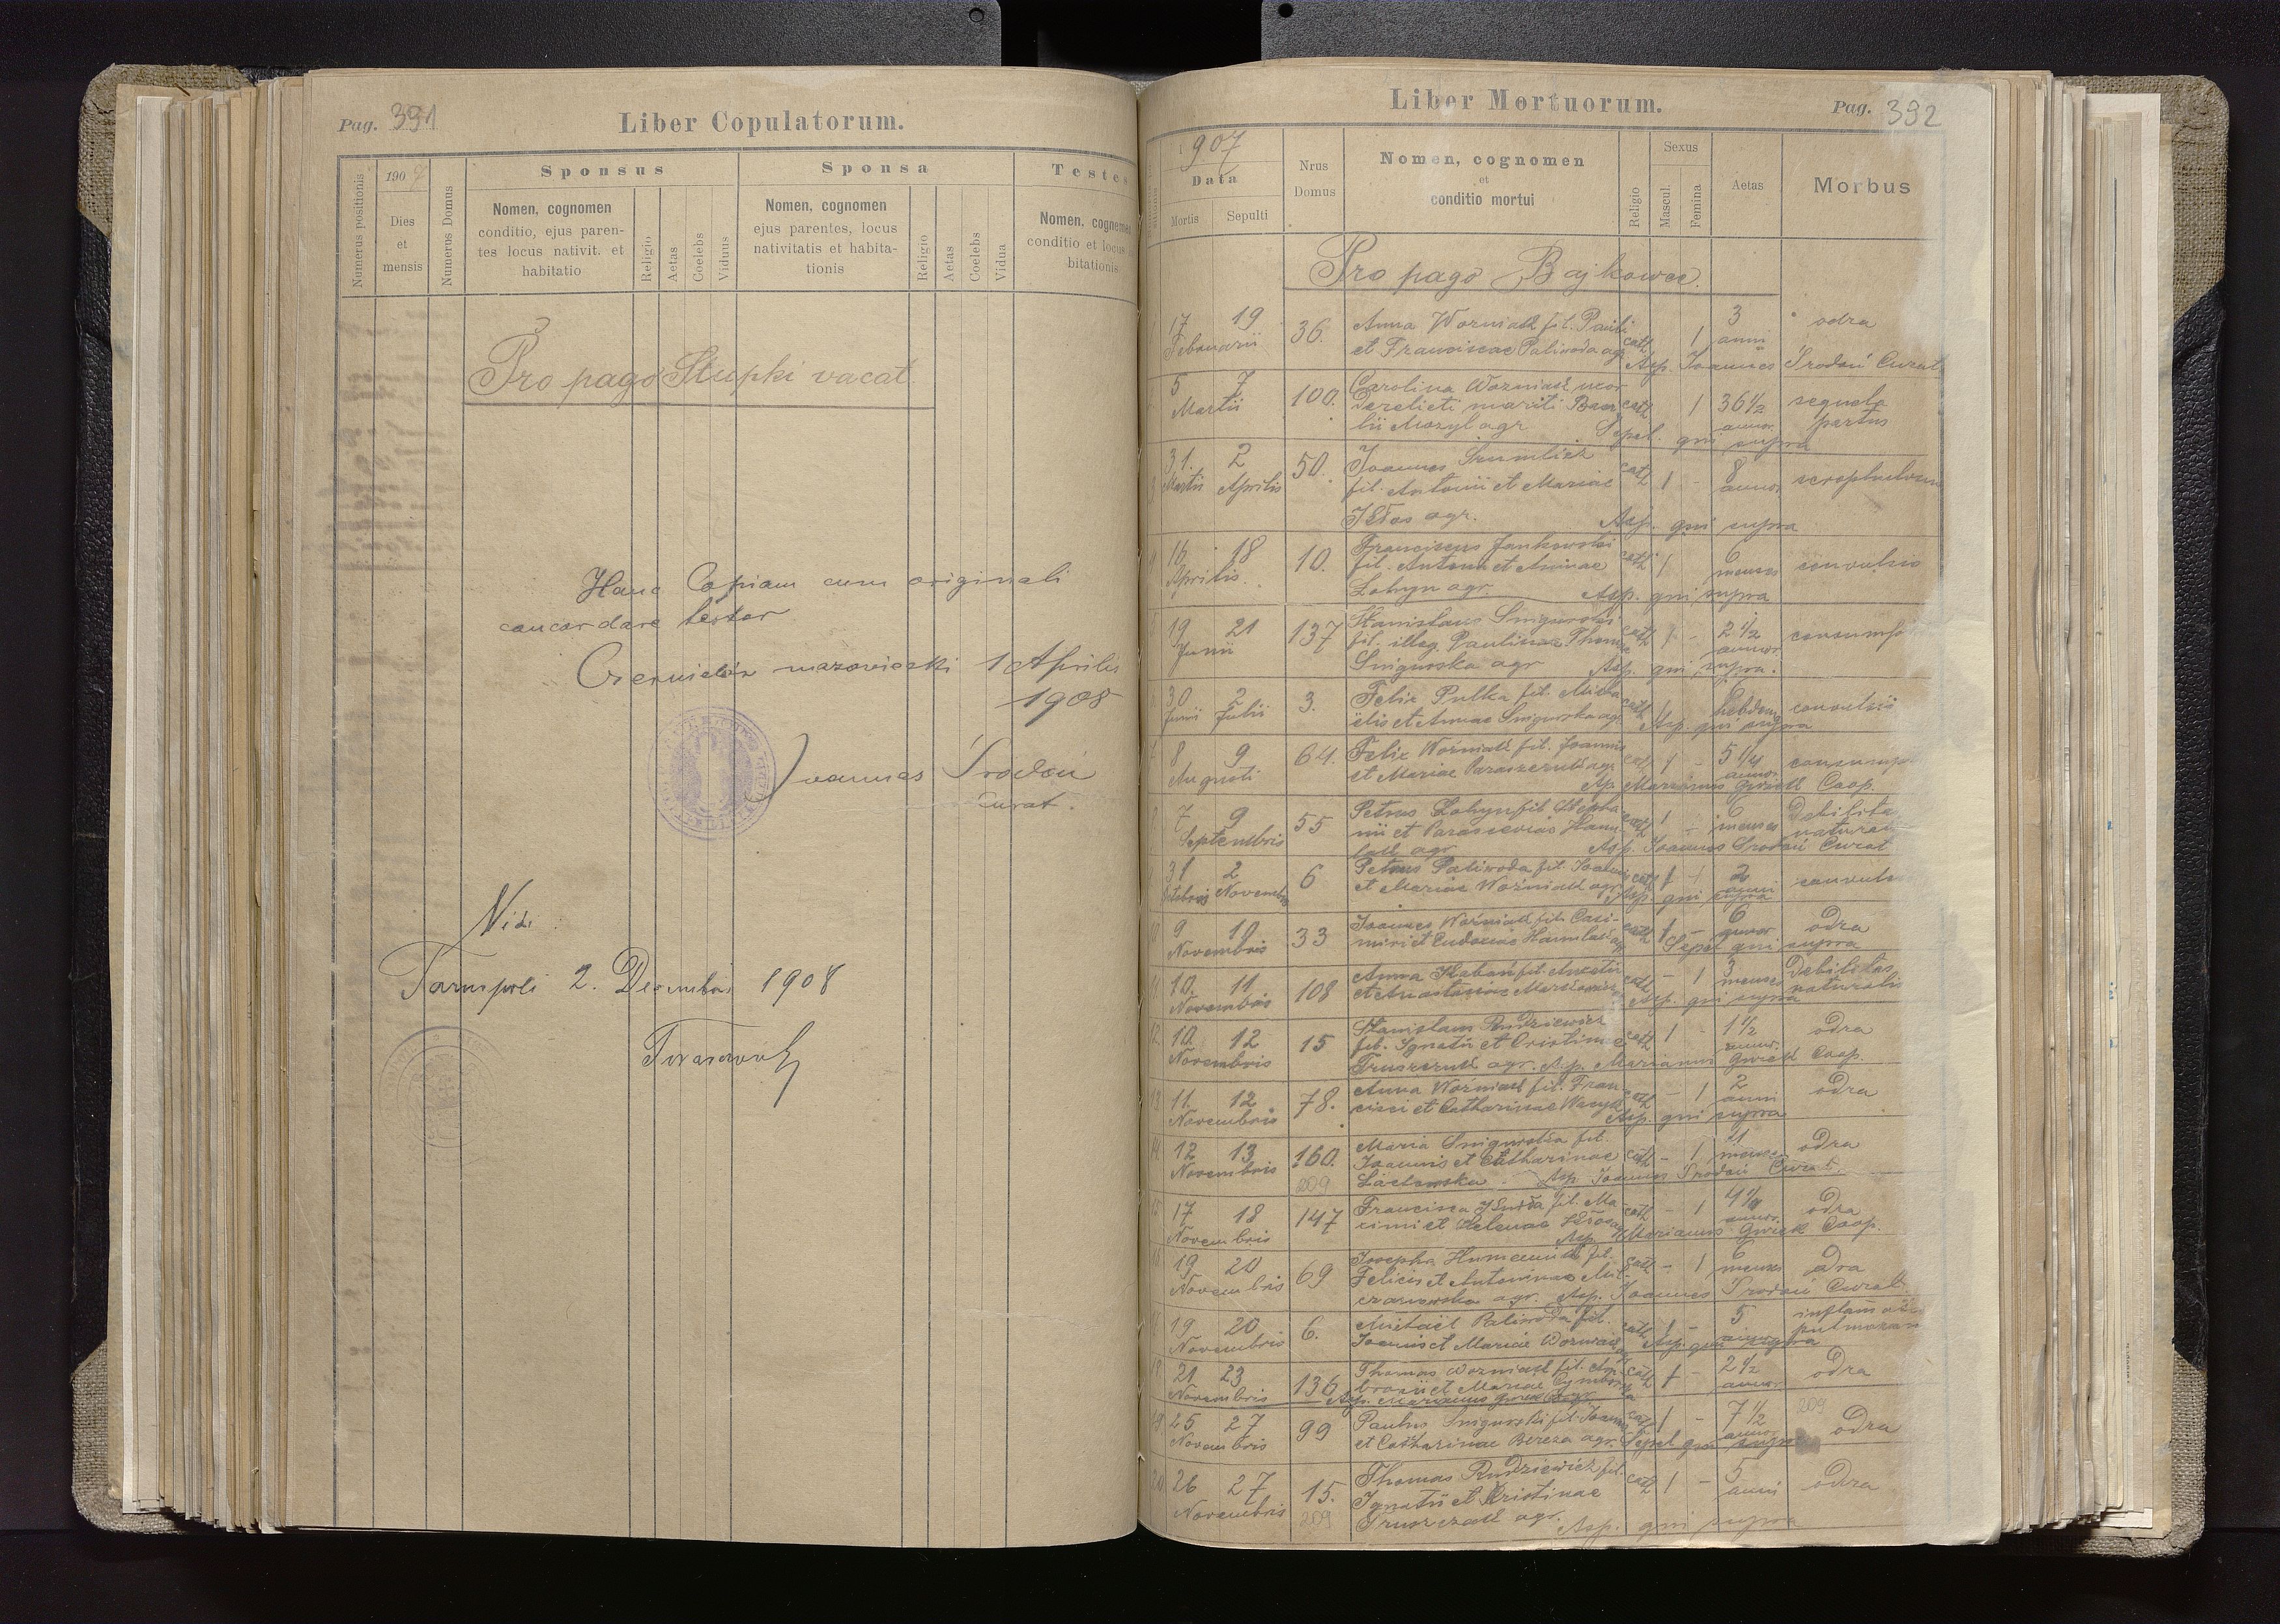 Pag. 391
Liber Copulatorum.
Numerus positionis
1907
Dies
et
mensis
Numerus Domus
Sponsus
Nomen, cognomen
conditio, ejus paren-
tes locus nativit. et
habitatio
Religio
Aetas
Coelebs
Viduus
Sponsa
Nomen, cognomen
ejus parentes, locus
nativitatis et habita-
tionis
Religio
Aetas
Coelebs
Vidua
Testes
Nomen, cognomen
conditio et locus
bitationis
Pro pago Stupki vacat
Hanc Copiam cum originali
concordare testor
Czernielów mazowiecki 1 Aprilis
1908
Joannes Środoń
Curat.
Vidi
Tarnopoli 2. Decembris 1908
Liber Mortuorum.
Pag. 392
1907
Data
Mortis
Sepulti
Nrus
Domus
Nomen, cognomen
et
conditio mortui
Religio
Sexus
Mascul.
Femina
Aetas
Morbus
Pro pago Bajkowce.
17 19 36. Anna Woźniak fil. Pauli cath 1 3 odra
Februarii et Franciscae Paliwoda agr. anni
Asp. Joannes Środoń Curat
5 7 100. Carolina Woźniak uxor cath 1 36 1/2 sequela
Martii derelicti mariti Basi annor. partus
lii Mozyl agr. Sepel. qui supra
31. 2 50. Joannes cath 1 - 8
Martii Aprilis fil. Antonii et Mariae annor.
agr. Asp. qui supra
16 18 10. Franciscus Jankowski cath 1 6 convulsio
Aprilis fil. Antonii et Annae menses
Łohyn agr. Asp. qui supra
19 21 137 Stanislaus Snigurski cath 1 - 2 1/2
Junii fil. illeg. Paulinae Thomae annor
Snigurska agr Asp. qui supra.
30 2 3. Felix Pulka fil. Micha cath 1
Junii Julii elis et Annae Snigurska agr. hebdom
Asp. qui supra
8 9 64. Felix Woźniak fil. Joannis cath 1 - 5 1/4
Augusti et Mariae agr. annor.
Asp. Marianus Gwiek Coop.
7 9 55 Petrus Łohyn fil. Stepha cath 1 - 6 Debilita
Septembris nii et Parasceviae menses
agr Asp. Joannes Środoń Curat
31 2 6 Petrus Paliwoda fil. Joannis cath 1 2
Octobris Novembris et Mariae Woźniak agr anni
Asp. qui supra
10 9 10 33 Joannes Woźniak fil. Casi- cath 1 - 6 odra
Novembris miri et Eudoxiae agr annor
Sepel qui supra
11 10. 11 108 Anna fil. cath - 1 3 Debilitas
Novembris et Anastasiae menses naturalis
Asp. qui supra
12. 10. 12 15 Stanislaus Rudziewicz cath 1 - 1 1/2 odra
Novembris fil. Ignatii et Cristinae annor.
agr. Asp. Marianus Gwiek Coop.
13 11. 12 78. Anna Woźniak fil. Fran- cath - 1 2 odra
Novembris cisci et Catharinae anni
Asp. qui supra
14. 12 13 160. Maria Snigurska fil. cath - 1 11 odra
Novembris Joannis et Catharinae menses
209 Asp. Joannes Środoń Curat.
15 17 18 147 Francisca fil. Ma- cath - 1 odra
Novembris ximi et Helenae annor.
Asp. Marianus Gwiek Coop.
16 19 20 69 Josepha Humeniuk fil. cath - 1 6 odra
Novembris Felicis et Antoninae Mil- menses
czarowska agr. Asp. Joannes Środoń Curat
19 20 6. Michael Paliwoda fil. cath 1 - 5
Novembris Joannis et Mariae Woźniak annor
Asp. qui supra
18 21 23 136 Thomas Woźniak fil. Am cath 1 - 2 1/2 odra
Novembris brosii et Mariae annor.
Asp. Marianus Gwiek Coop.
209
19 25 27 99 Paulus Snigurski fil. Joannis cath 1 - 7 1/2 odra
Novembris et Catharinae Bereza agr. annor.
Sepel qui supra
20 26 27 15. Thomas Rudziewicz fil. cath 1 - 5 odra
Novembris Ignatii et Kristinae anni
209 agr. Asp. qui supra